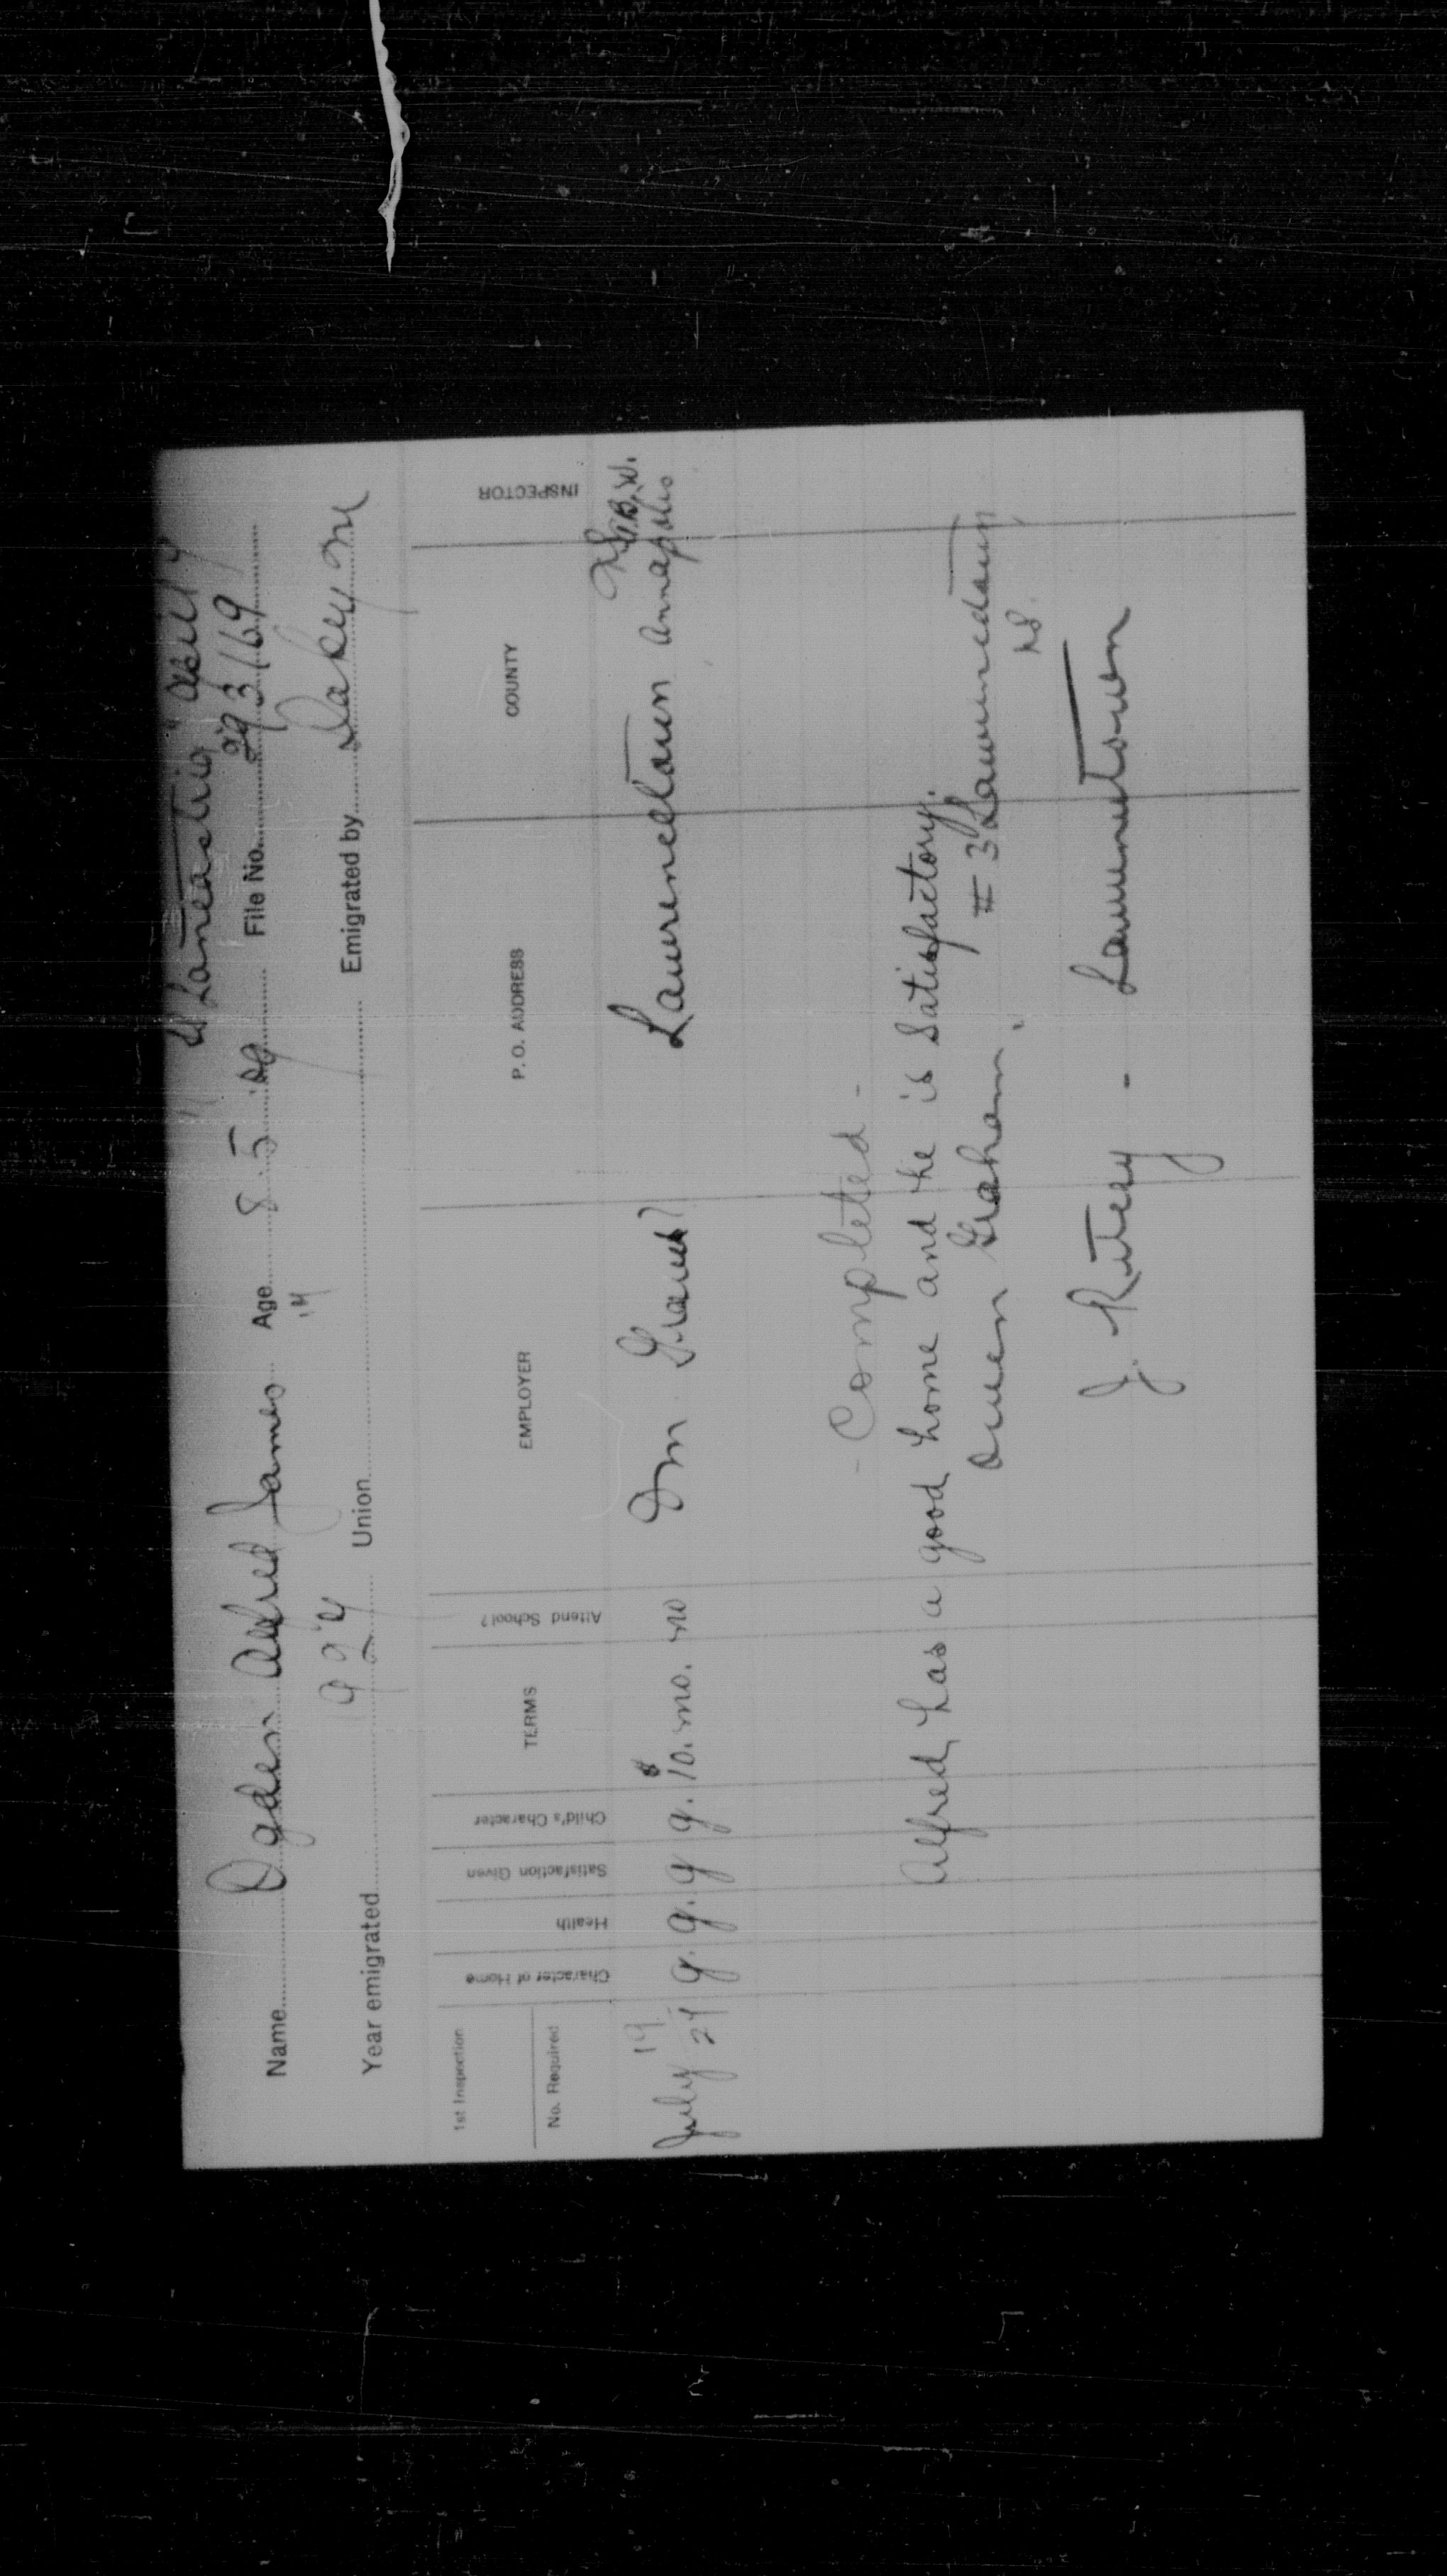 "Lancastria" April 4
Name Ogden Alfred James Age 8.5.09 File No. 293169
14
Year emigrated 1924 Union Emigrated by Dakeyne
1st Inspection
No. Required
Character of Home Health Satisfaction Given Child's Character TERMS Attend School? EMPLOYER P. O. ADDRESS COUNTY INSPECTOR
July 19 24 g. g. g g. $10. mo. no Om Lawrencetown Annapolis NS G.B.W.
- Completed -
Alfred has a good home and he is satisfactory.
Owen Graham, #3 Lawrencetown
NS.
J. Lawrencetown